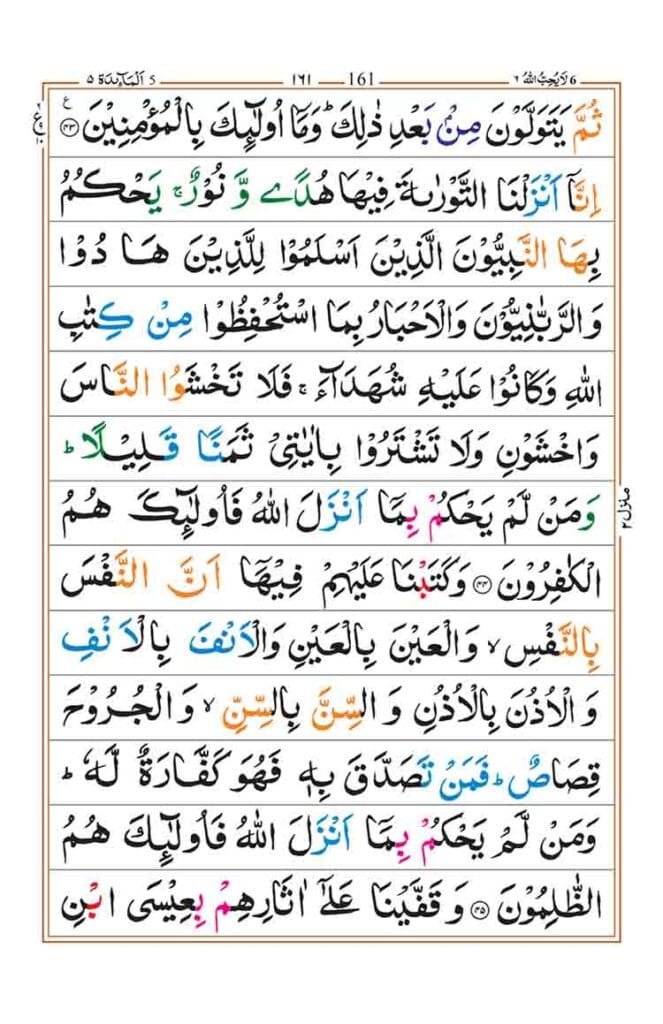 اَلْمَآئِدَة ٥ 5 ١٦١ 161 لَا یُحِبُّ اللّٰهُ ٦ 6
ثُمَّ یَتَوَلَّوْنَ مِنْۢ بَعْدِ ذٰلِكَ ؕ وَمَاۤ اُولٰٓئِكَ بِالْمُؤْمِنِیْنَ ﴿۴۳﴾ ع
اِنَّاۤ اَنْزَلْنَا التَّوْرٰىةَ فِیْهَا هُدًی وَّ نُوْرٌ ۚ یَحْكُمُ
بِهَا النَّبِیُّوْنَ الَّذِیْنَ اَسْلَمُوْا لِلَّذِیْنَ هَادُوْا
وَالرَّبّٰنِیُّوْنَ وَالْاَحْبَارُ بِمَا اسْتُحْفِظُوْا مِنْ كِتٰبِ
اللّٰهِ وَكَانُوْا عَلَیْهِ شُهَدَآءَ ۚ فَلَا تَخْشَوُا النَّاسَ
وَاخْشَوْنِ وَلَا تَشْتَرُوْا بِاٰیٰتِیْ ثَمَنًا قَلِیْلًا ؕ
وَمَنْ لَّمْ یَحْكُمْ بِمَاۤ اَنْزَلَ اللّٰهُ فَاُولٰٓئِكَ هُمُ
الْكٰفِرُوْنَ ﴿۴۴﴾ وَكَتَبْنَا عَلَیْهِمْ فِیْهَاۤ اَنَّ النَّفْسَ
بِالنَّفْسِ ۙ وَالْعَیْنَ بِالْعَیْنِ وَالْاَنْفَ بِالْاَنْفِ
وَالْاُذُنَ بِالْاُذُنِ وَالسِّنَّ بِالسِّنِّ ۙ وَالْجُرُوْحَ
قِصَاصٌ ؕ فَمَنْ تَصَدَّقَ بِهٖ فَهُوَ كَفَّارَةٌ لَّهٗ ؕ
وَمَنْ لَّمْ یَحْكُمْ بِمَاۤ اَنْزَلَ اللّٰهُ فَاُولٰٓئِكَ هُمُ
الظّٰلِمُوْنَ ﴿۴۵﴾ وَقَفَّیْنَا عَلٰۤی اٰثَارِهِمْ بِعِیْسَی ابْنِ
منزل ٢